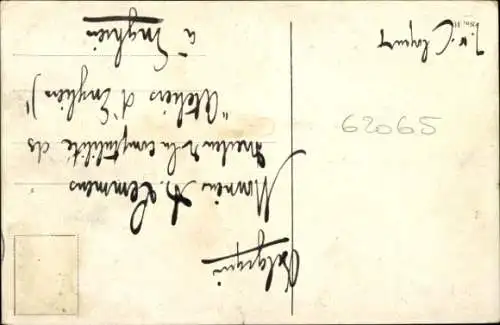 Monsieur A. Lemmens
Directeur de la comptabilité des
"Ateliers d'Enghien)"
à Enghien
Belgique
62065